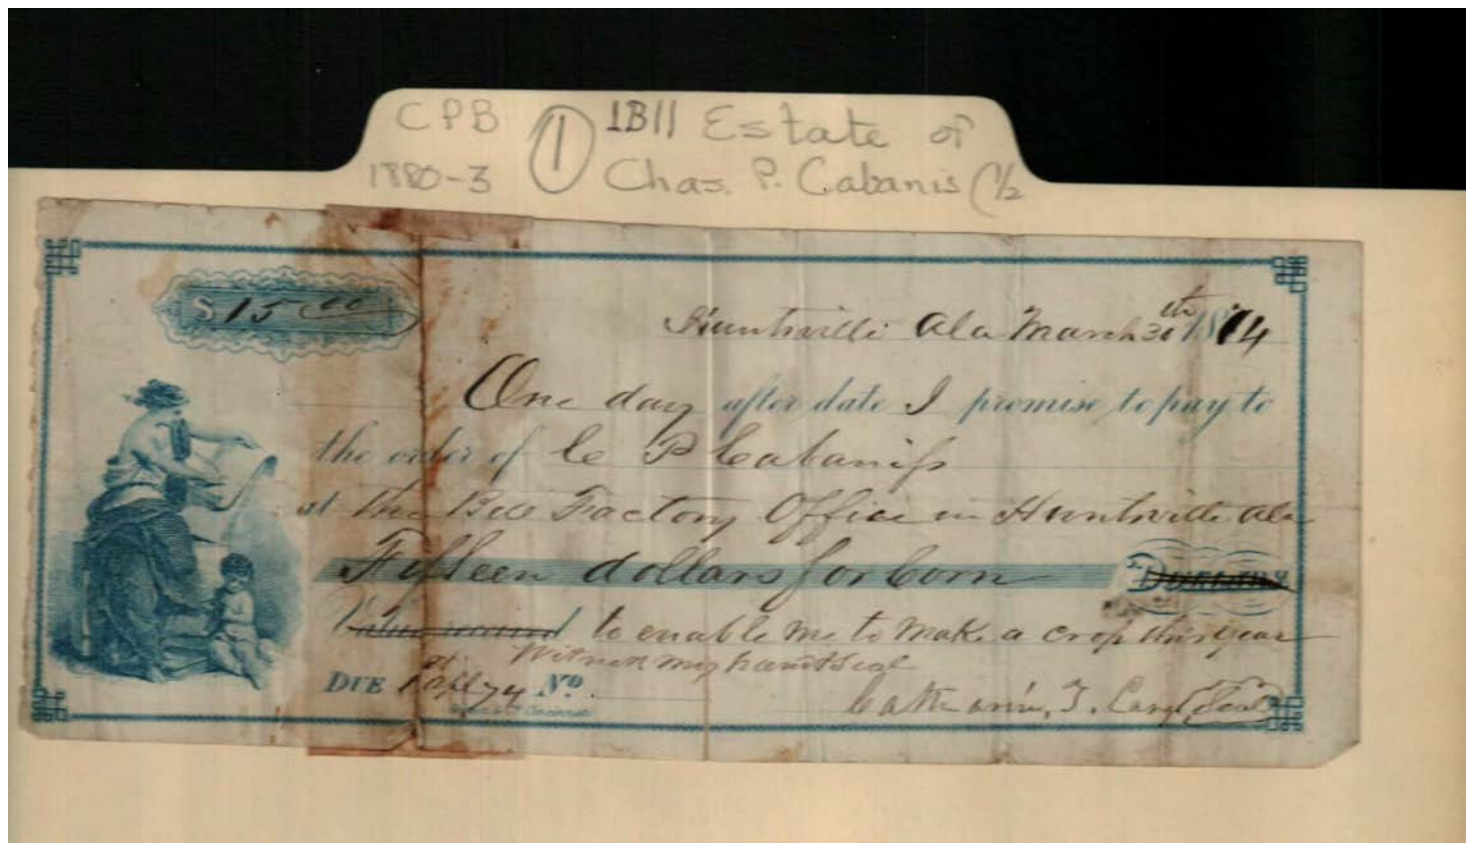 CPB ① 1B11 Estate of
1880-3 Chas. P. Cabanis (1/2
$ 15 00
Huntsville Ala March 30th 1874
One day after date I promise to pay to
the order of C P Cabaniss
at the Bell Factory Office in Huntsville Ala
Fifteen dollars for Corn Dollars
Value received to enable me to make a crop this year
Witness my hand & Seal
DUE 1st apl 74 No.
Catharine, T. (Seal)